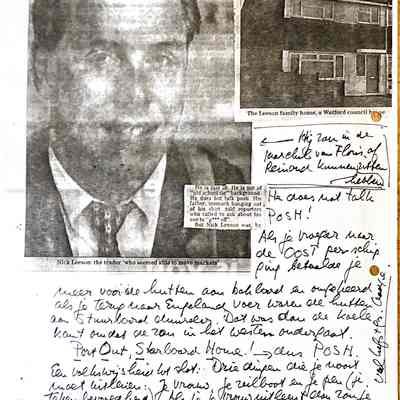 The Leeson family home, a Watford council house
← Hij zou in de
van Floris of
Reinoud kunnen zitten
He is just 28. He is not of
"old school tie" background.
He does not talk posh. His
father, stomach hanging out
of his shirt, told reporters
who called to ask about his
son to "p*** off".
But Nick Leeson was, by
Nick Leeson: the trader 'who seemed able to move markets'
He does not talk
POSH!
Als je vroeger naar
de 'OOST' per schip
ging betaalde je
meer voor de hutten aan bakboord en omgekeerd
als je terug naar Engeland voer waren de hutten
aan stuurboord duurder. Dat was dan de koele
kant omdat de zon in het westen ondergaat.
Port Out, Starboard Home. → dus POSH.
Een volkswijsheid tot slot: Drie dingen die je nooit
moet uitlenen: Je vrouw, je zeilboot en je pen (je